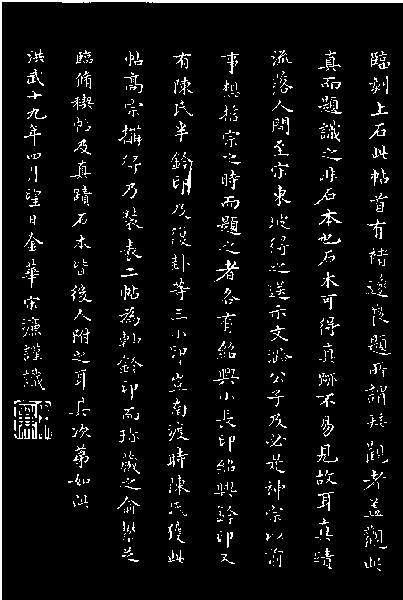 臨刻上石此帖首有褚遂良題所謂拜觀者蓋觀此
真而題識之非石本也石本可得真跡不易見故耳真蹟
流落人間至宋東坡得之送示文潞公子及必是神宗以前
事想哲宗之時而題之者各有紹興小長印紹興鈐印又
有陳氏半鈐印及復卦等三小印豈南渡時陳氏獲此
帖高宗購得乃裝表二帖為軸鈐印而珍藏之俞
臨脩稧帖及真蹟石本皆後人附之耳其次第如此
洪武十九年四月望日金華宋濂謹識